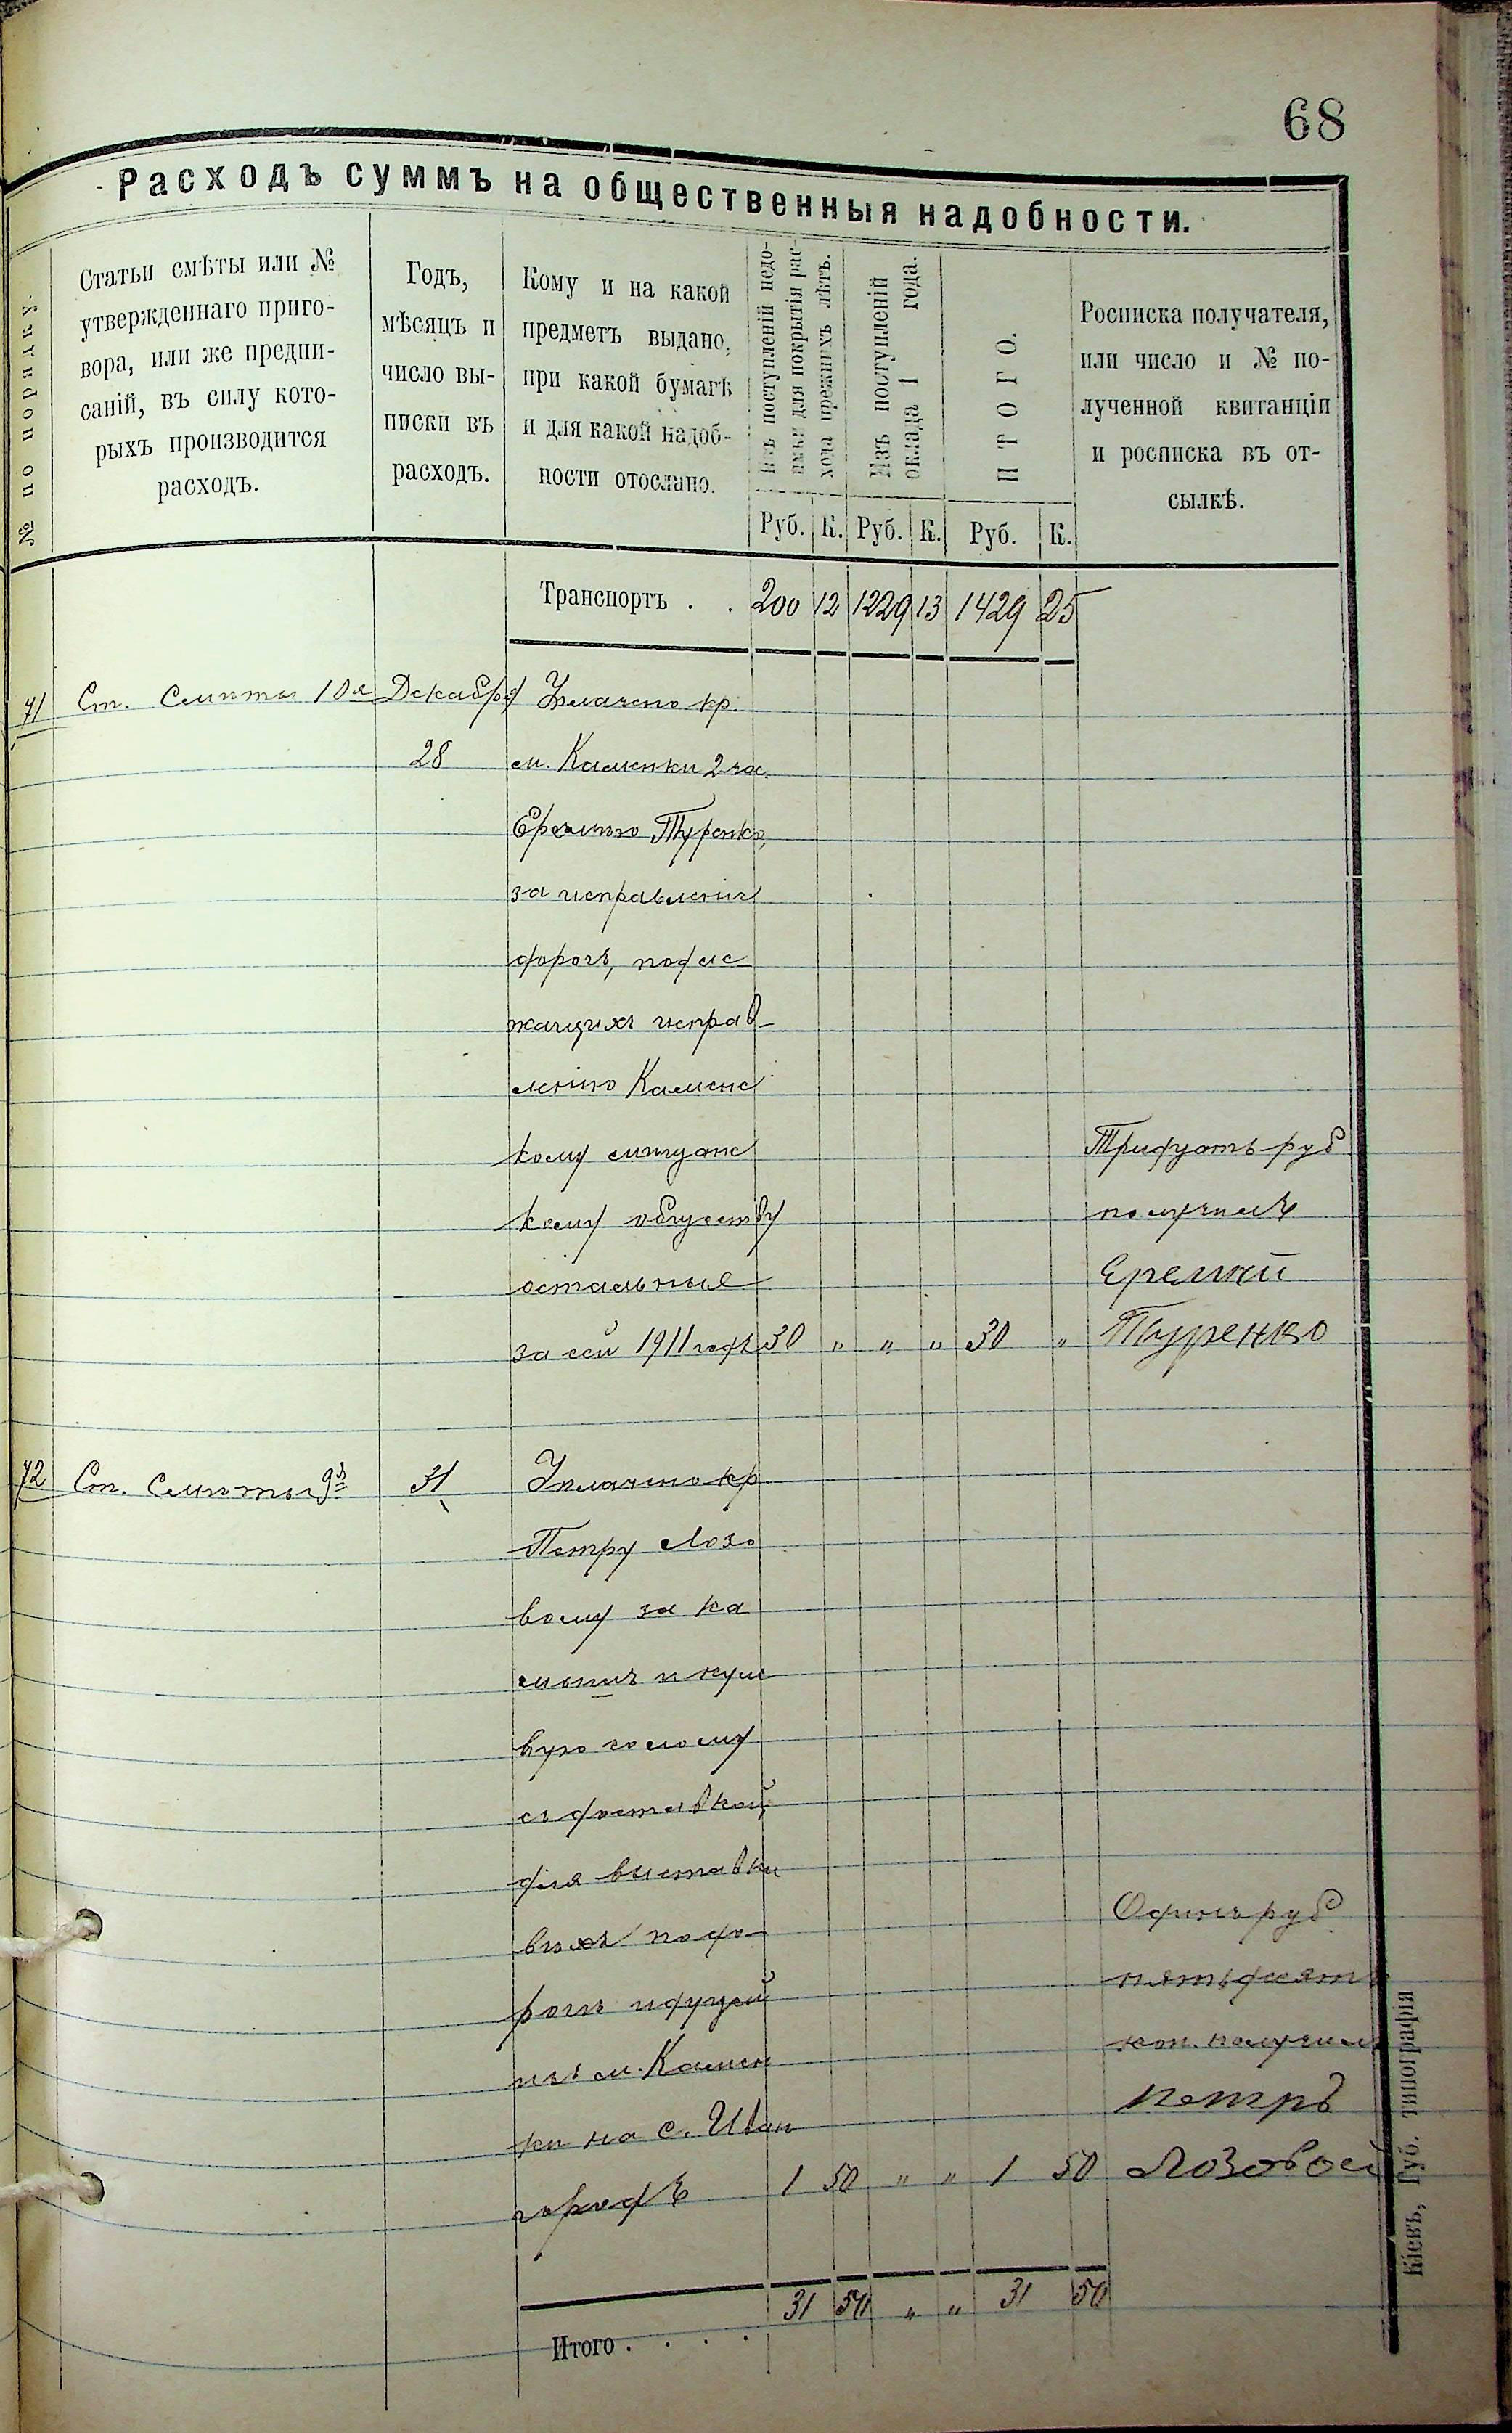 68
Расходъ суммъ на общественныя надобности.
№ по порядку.
Статьи смѣты или №
утвержденнаго приго-
вора, или же предпи-
саній, въ силу кото-
рыхъ производится
расходъ.
Годъ,
мѣсяцъ и
число вы-
писки въ
расходъ.
Кому и на какой
предметъ выдано,
при какой бумагѣ
и для какой надоб-
ности отослано.
Изъ поступленій недо-
имки для покрытія рас-
хода прежнихъ лѣтъ.
Изъ поступленій
оклада 1 года.
ИТОГО.
Росписка получателя,
или число и № по-
лученной квитанціи
и росписка въ от-
сылкѣ.
Руб. К. Руб. К. Руб. К.
Транспортъ . . 200 12 1229 13 1429 25
71 Ст. Смѣты 10я Декабря Уплачено кр.
28 м. Каменки 2 ча.
Еремѣю Туренко,
за исправленіе
дорогъ, подле
жащихъ исправ-
ленію Каменс
кому мѣщанс
кому обществу
остальные
за сей 1911 годъ 30 " " " 30 "
Тридцать руб
получилъ
Еремий
Туренко
72 Ст. Смѣты 9я 31 Уплачено кр
Петру Лозо
вому за ка
мышъ и куле
вую солому
съ доставкой,
для выставки
вѣхъ по до-
рогѣ идущей
изъ м. Камен
ки на с. Иван
городъ 1 50 " " 1 50
Одинъ руб
пятьдесятъ
коп. получилъ
Петръ
Лозовой
Итого . . . . 31 50 " " 31 50
Кіевъ, Губ. типографія